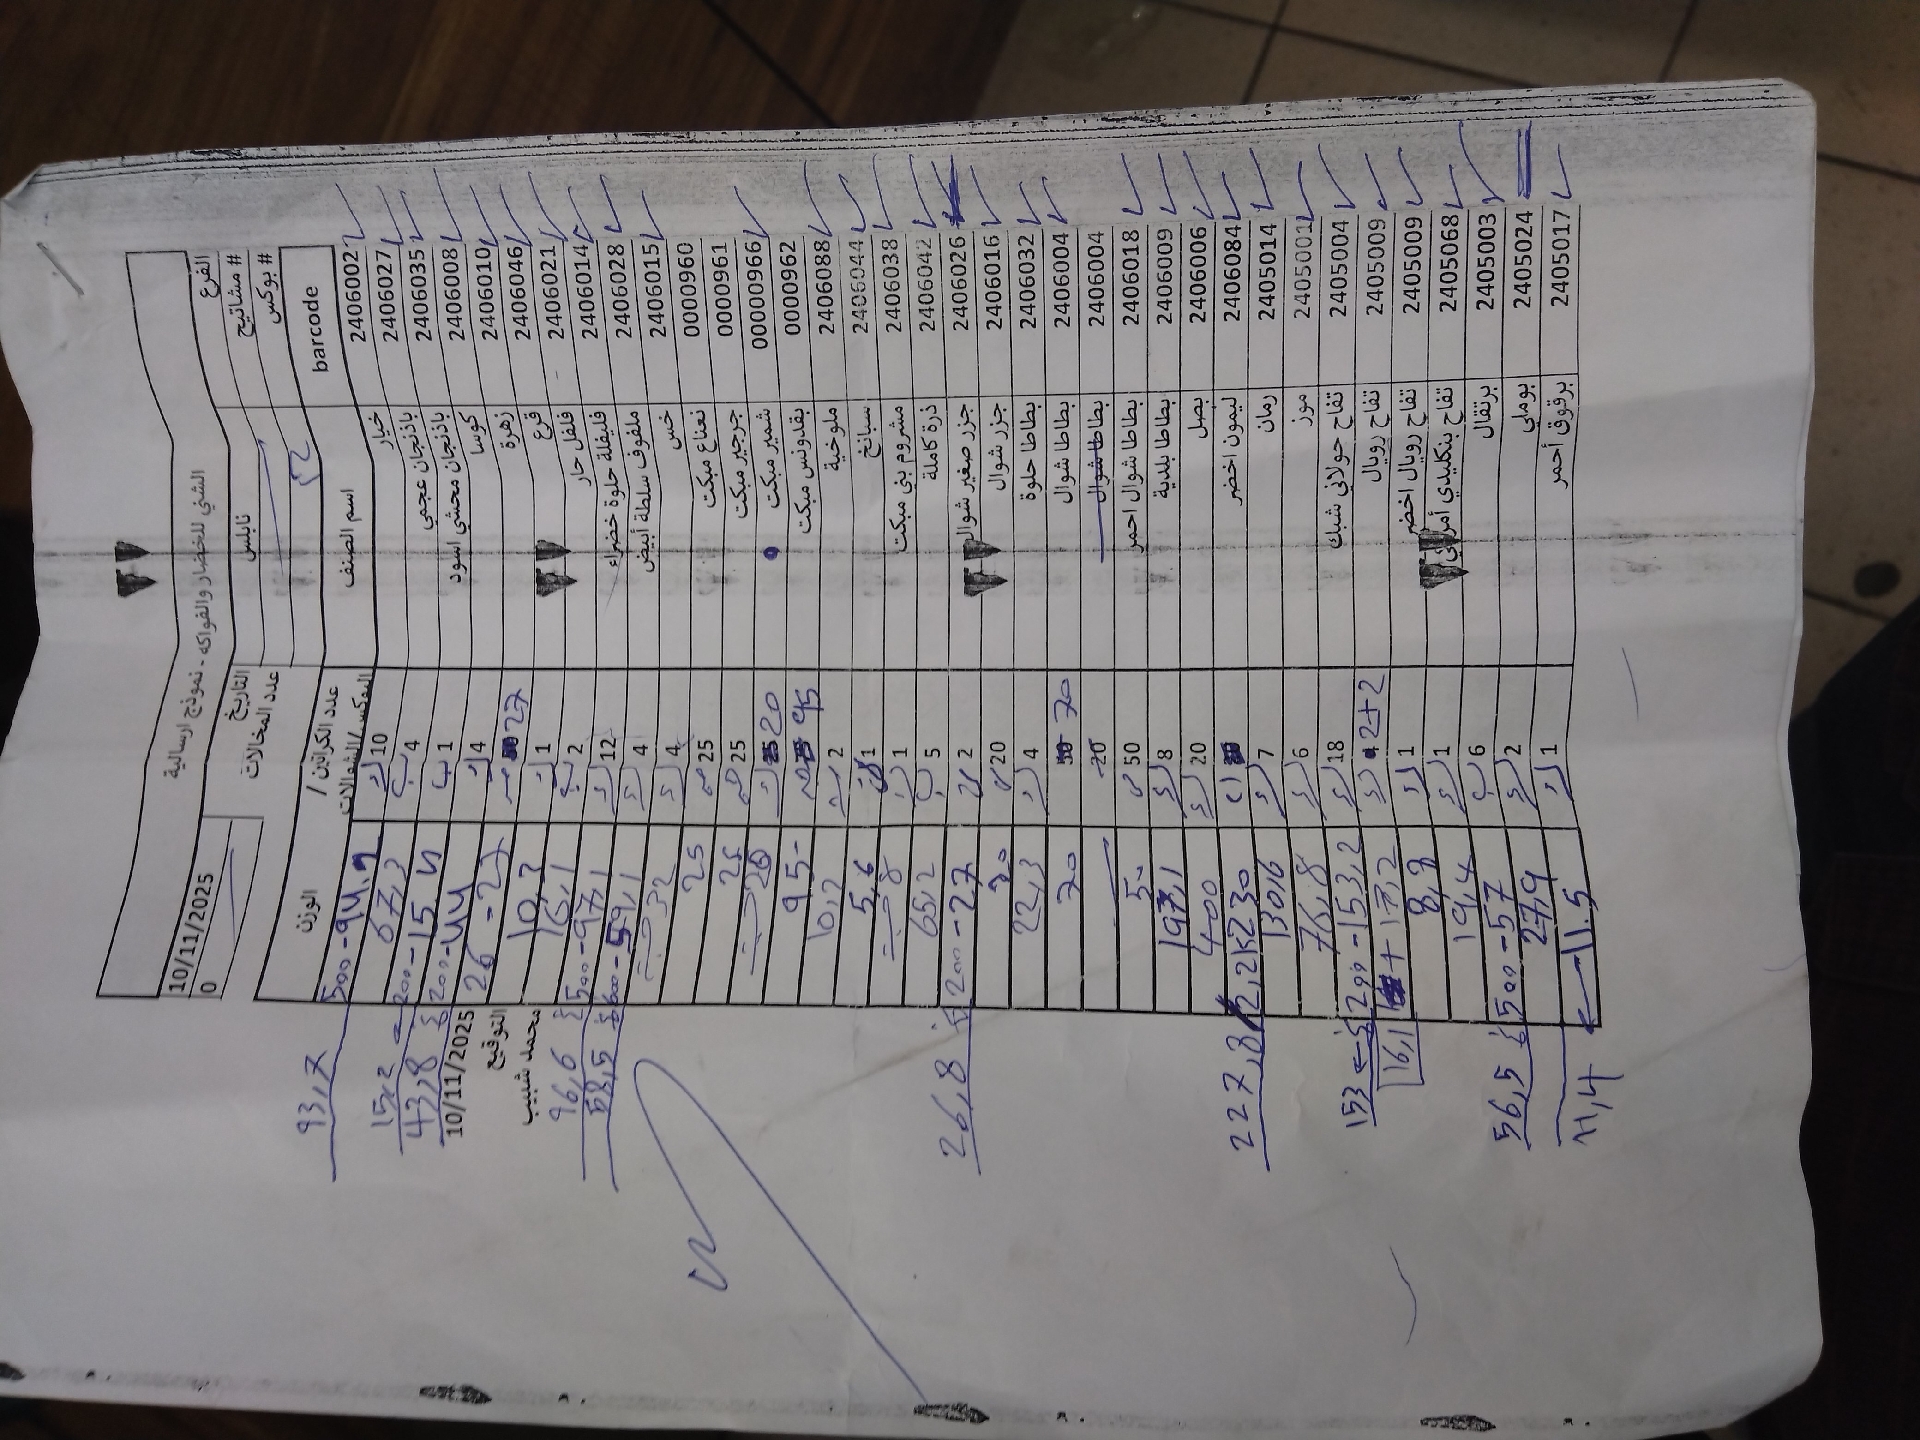 الشني للخضار والفواكه - نموذج ارسالية
الفرع نابلس التاريخ 10/11/2025
# مشاتيح عدد المخالات 0
# بوكس 52
barcode اسم الصنف عدد الكراتين / البوكس/الشوالات الوزن
2406002 خيار 10 93,7
2406027 باذنجان عجمي 4 67,3
2406035 باذنجان محشي اسود 1 200-15 15,2
2406008 كوسا 4 200-44 43,8
2406010 زهرة 27 26-27
2406046 قرع 1 10,3
2406021 فلفل حار 2 16,1
2406014 فليفلة حلوة خضراء 12 500-97,1 96,6
2406028 ملفوف سلطة أبيض 4 600-59,1 58,5
2406015 خس 4 32
00000960 نعناع مبكت 25 25
00000961 جرجير مبكت 25 25
000000966 شمير مبكت 20 20
00000962 بقدونس مبكت 95 95
2406088 ملوخية 2 10,2
2406044 سبانخ 1 5,6
2406038 مشروم بني مبكت 1 8
2406042 ذرة كاملة 5 65,2
2406026 جزر صغير شوال 2 200-27 26,8
2406016 جزر شوال 20
2406032 بطاطا حلوة 4 22,3
2406004 بطاطا شوال 70 70
2406004 بطاطا شوال 20
2406018 بطاطا شوال احمر 50 50
2406009 بطاطا بلدية 8 197,1
2406006 بصل 20 400
2406084 ليمون اخضر 2,2 230 227,8
2405014 رمان 7 130,6
2405001 موز 6 76,8
2405004 تفاح حولاني شبك 18 200-153,2 153
2405009 تفاح رويال 2+2 17,2 16,1
2405009 تفاح رويال اخضر 1 8,3
2405068 تفاح بنكليدي 1 19,4
2405003 برتقال 6 500-57 56,5
2405024 بوملي 2 27,9
2405017 برقوق أحمر 1 11.5 11,4
10/11/2025
التوقيع
محمد شبيب